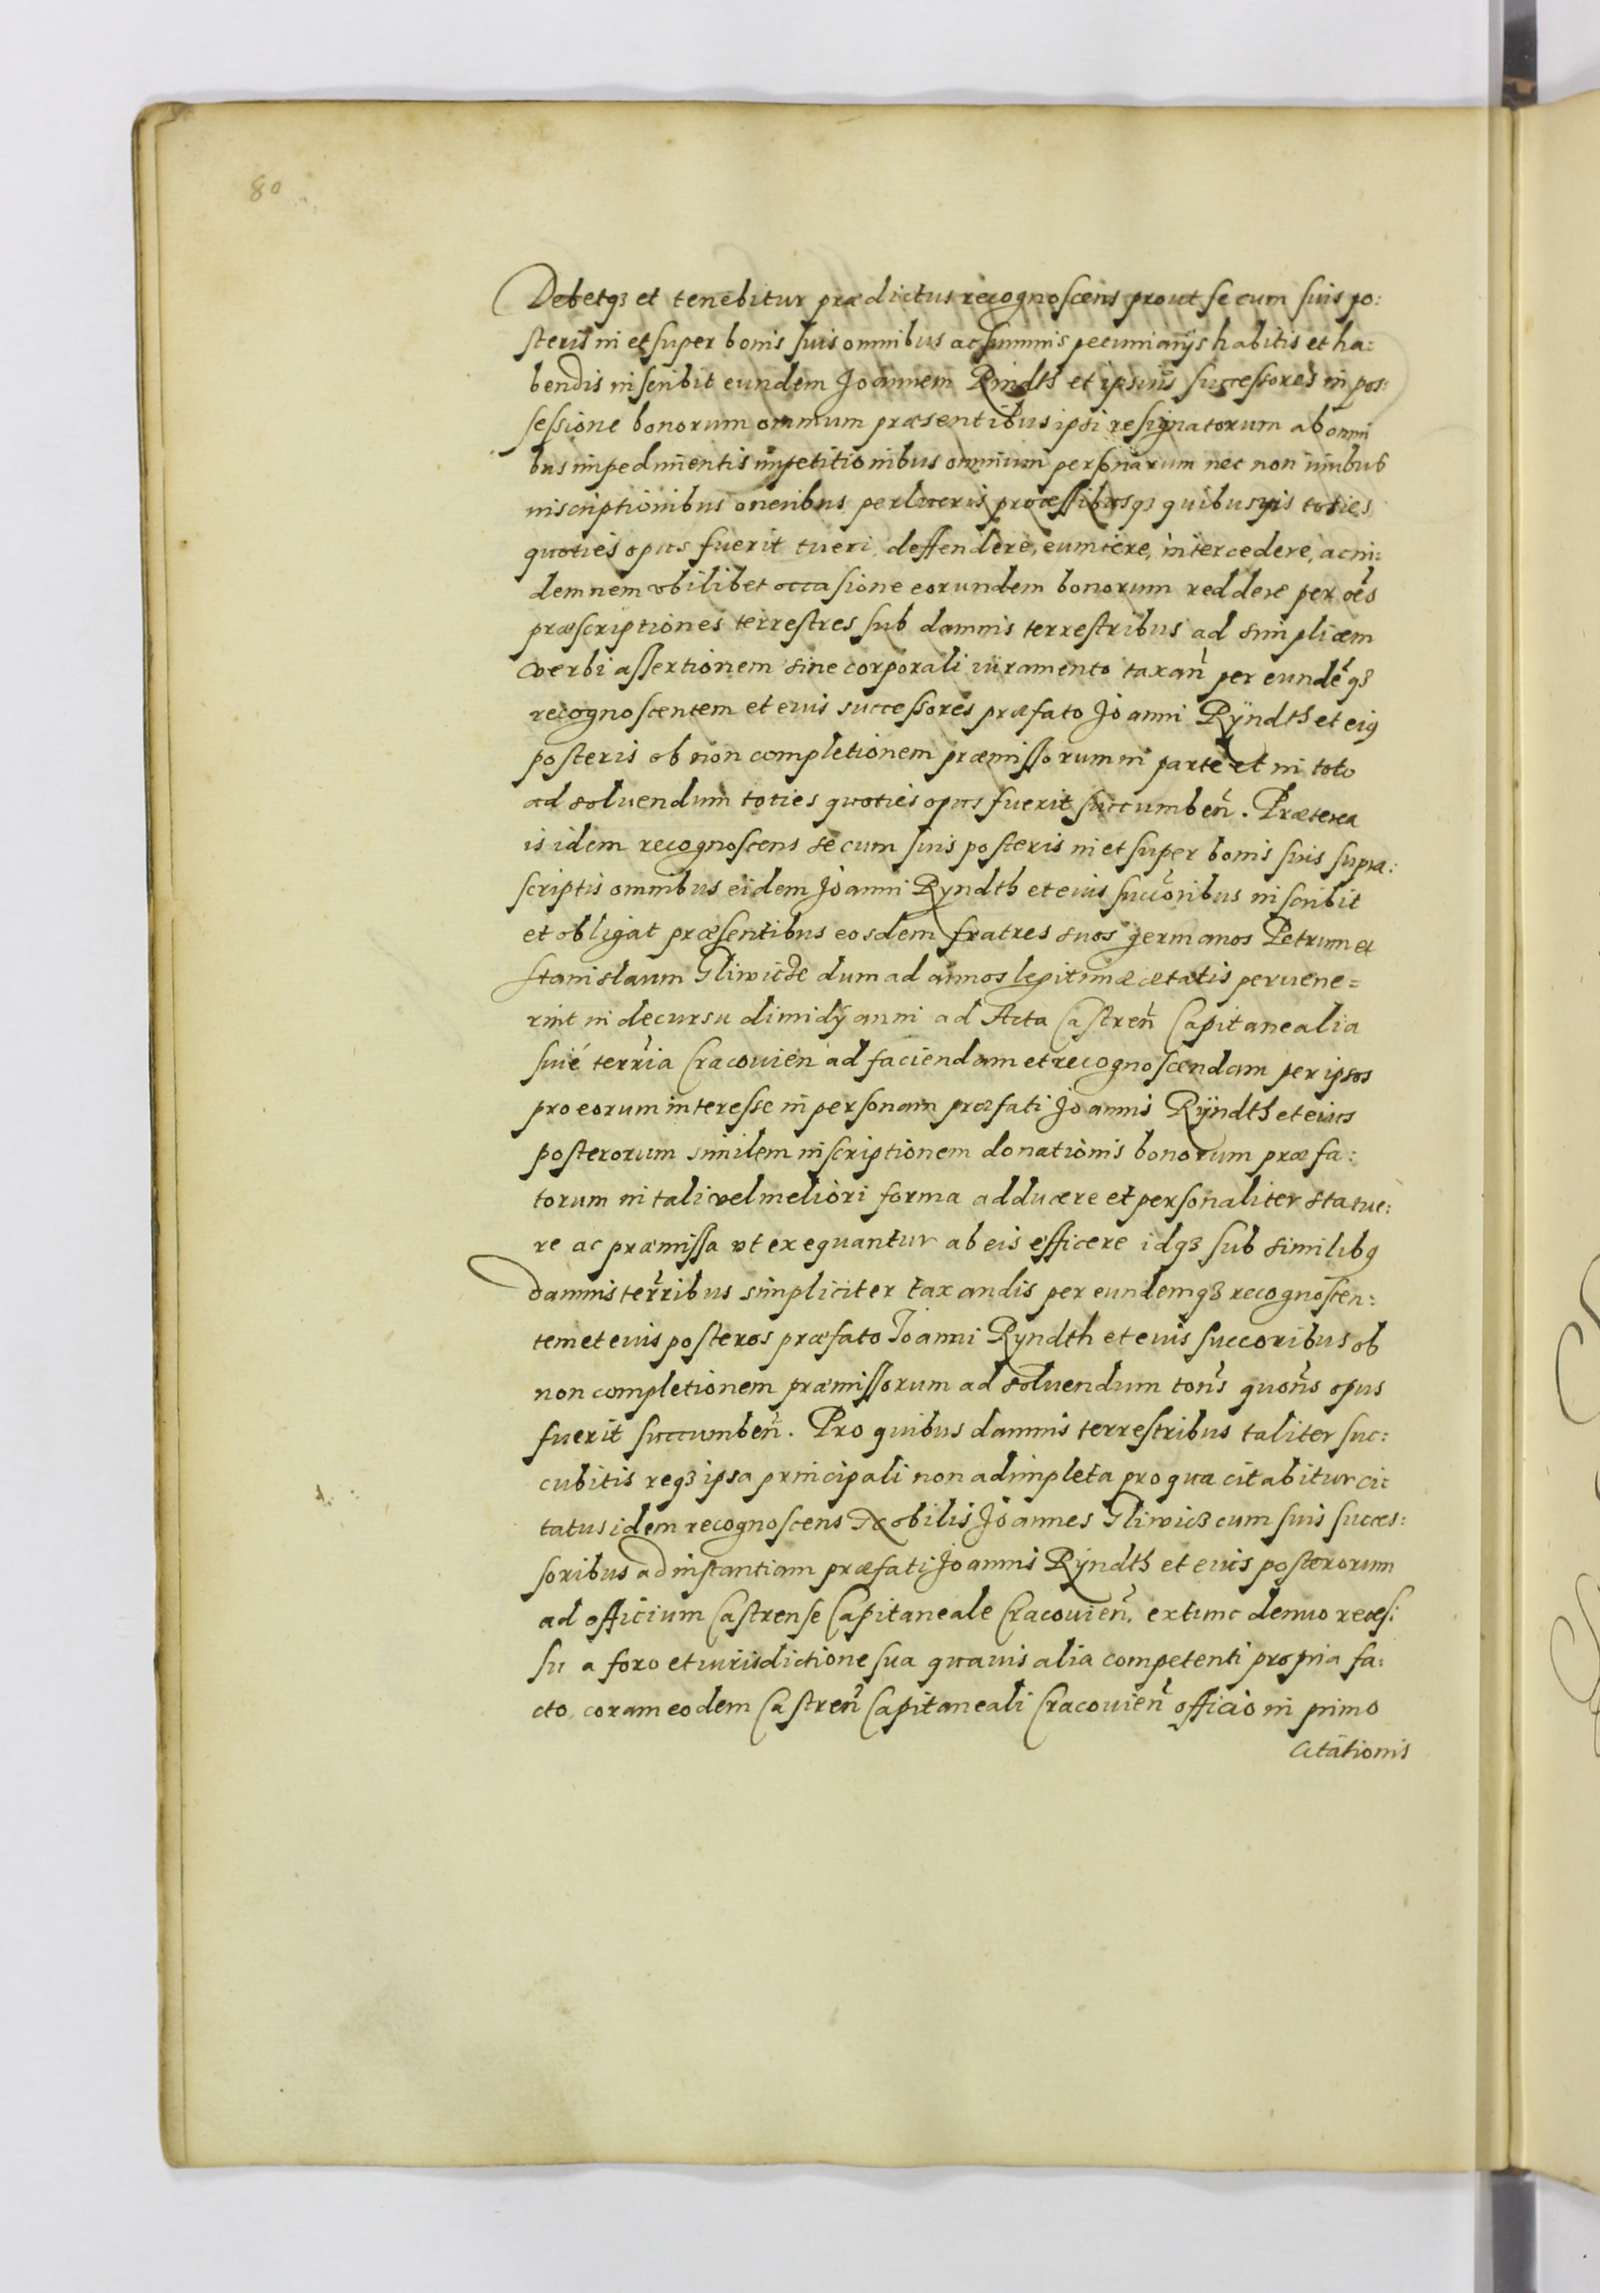 80
Debetq3 et tenebitur prædictus recognoscens prout se cum suis po:
steris in et super bonis suis omnibus ac summis pecuniarijs habitis et ha:
bendis inscribit eundem Joannem Rindth et ipsius successores in pos:
sessione bonorum omnium præsentibus ipsi resignatorum ab omni
bus impedimentis impetitionibus omnium personarum nec non
inscriptionibus oneribus perlucris processibusq3 quibusvis toties
quoties opus fuerit tueri, deffendere, evincere, intercedere, ac in:
demnem vbilibet occasione eorundem bonorum reddere per oẽs
præscriptiones terrestres sub damnis terrestribus ad simplicem
verbi assertionem sine corporali iuramento taxan̄ per eundẽq3
recognoscentem et eius successores præfato Joanni Ryndth et eiꝰ
posteris ob non completionem præmissorum in parte et in toto
ad soluendum toties quoties opus fuerit succumben̄. Præterea
is idem recognoscens se cum suis posteris in et super bonis suis supra:
scriptis omnibus eidem Joanni Ryndth et eius succ̄oribus inscribit
et obligat præsentibus eosdem fratres suos germanos Petrum et
Stanislaum Gliwicze dum ad annos legitimæ ætatis peruene=
rint in decursu dimidÿ anni ad Acta Castren̄ Capitanealia
siué terr̄ia Cracouien̄ ad faciendam et recognoscendam per ipsos
pro eorum interesse in personam præfati Joannis Rÿndth et eius
posterorum similem inscriptionem donationis bonorum præfa:
torum in tali vel meliori forma adducere et personaliter statue:
re ac præmissa vt exequantur ab eis efficere idq3 sub similibꝰ
damnis terr̄ibus simpliciter taxandis per eundemq3 recognoscen:
tem et eius posteros præfato Joanni Ryndth et eius succoribus ob
non completionem præmissorum ad soluendum ton̄s quon̄s opus
fuerit succumben̄. Pro quibus damnis terrestribus taliter suc:
cubitis req3 ipsa principali non adimpleta pro qua citabitur ci:
tatus idem recognoscens Nobilis Joannes Gliwic3 cum suis succes:
soribus ad instantiam præfati Joannis Rÿndth et eius posterorum
ad officium Castrense Capitaneale Cracouien̄, extunc denuo reces:
su a foro et iurisdictione sua quauis alia competenti propria fa:
cto, coram eodem Castren̄ Capitaneali Cracouien̄ officio in primo
Citationis